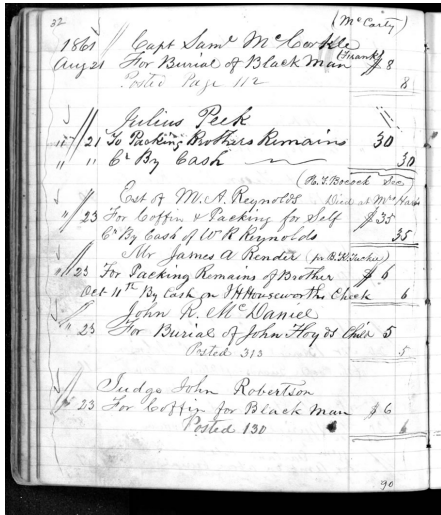 32 (McCarty)
1861 Capt Saml McCorkle
Aug 21 For Burial of Black Man (Frank) $8
Posted Page 112 8
Julius Peck
" 21 To Packing Brothers Remains 30
" " Cr By Cash 30
(R. T. Bocock Sec)
Est of M. A. Reynolds Died at Mrs
" 23 For Coffin & Packing for Self $35
Cr By Cash of W R Reynolds 35
Mr James A Render (pr B. K. Tucker)
" 23 For Packing Remains of Brother $6
Oct 11th By Cash on J H Houseworths Check 6
John R. McDaniel
" 23 For Burial of John Floyds Child 5
Posted 313 5
Judge John Robertson
" 23 For Coffin for Black Man $6
Posted 130 6
90